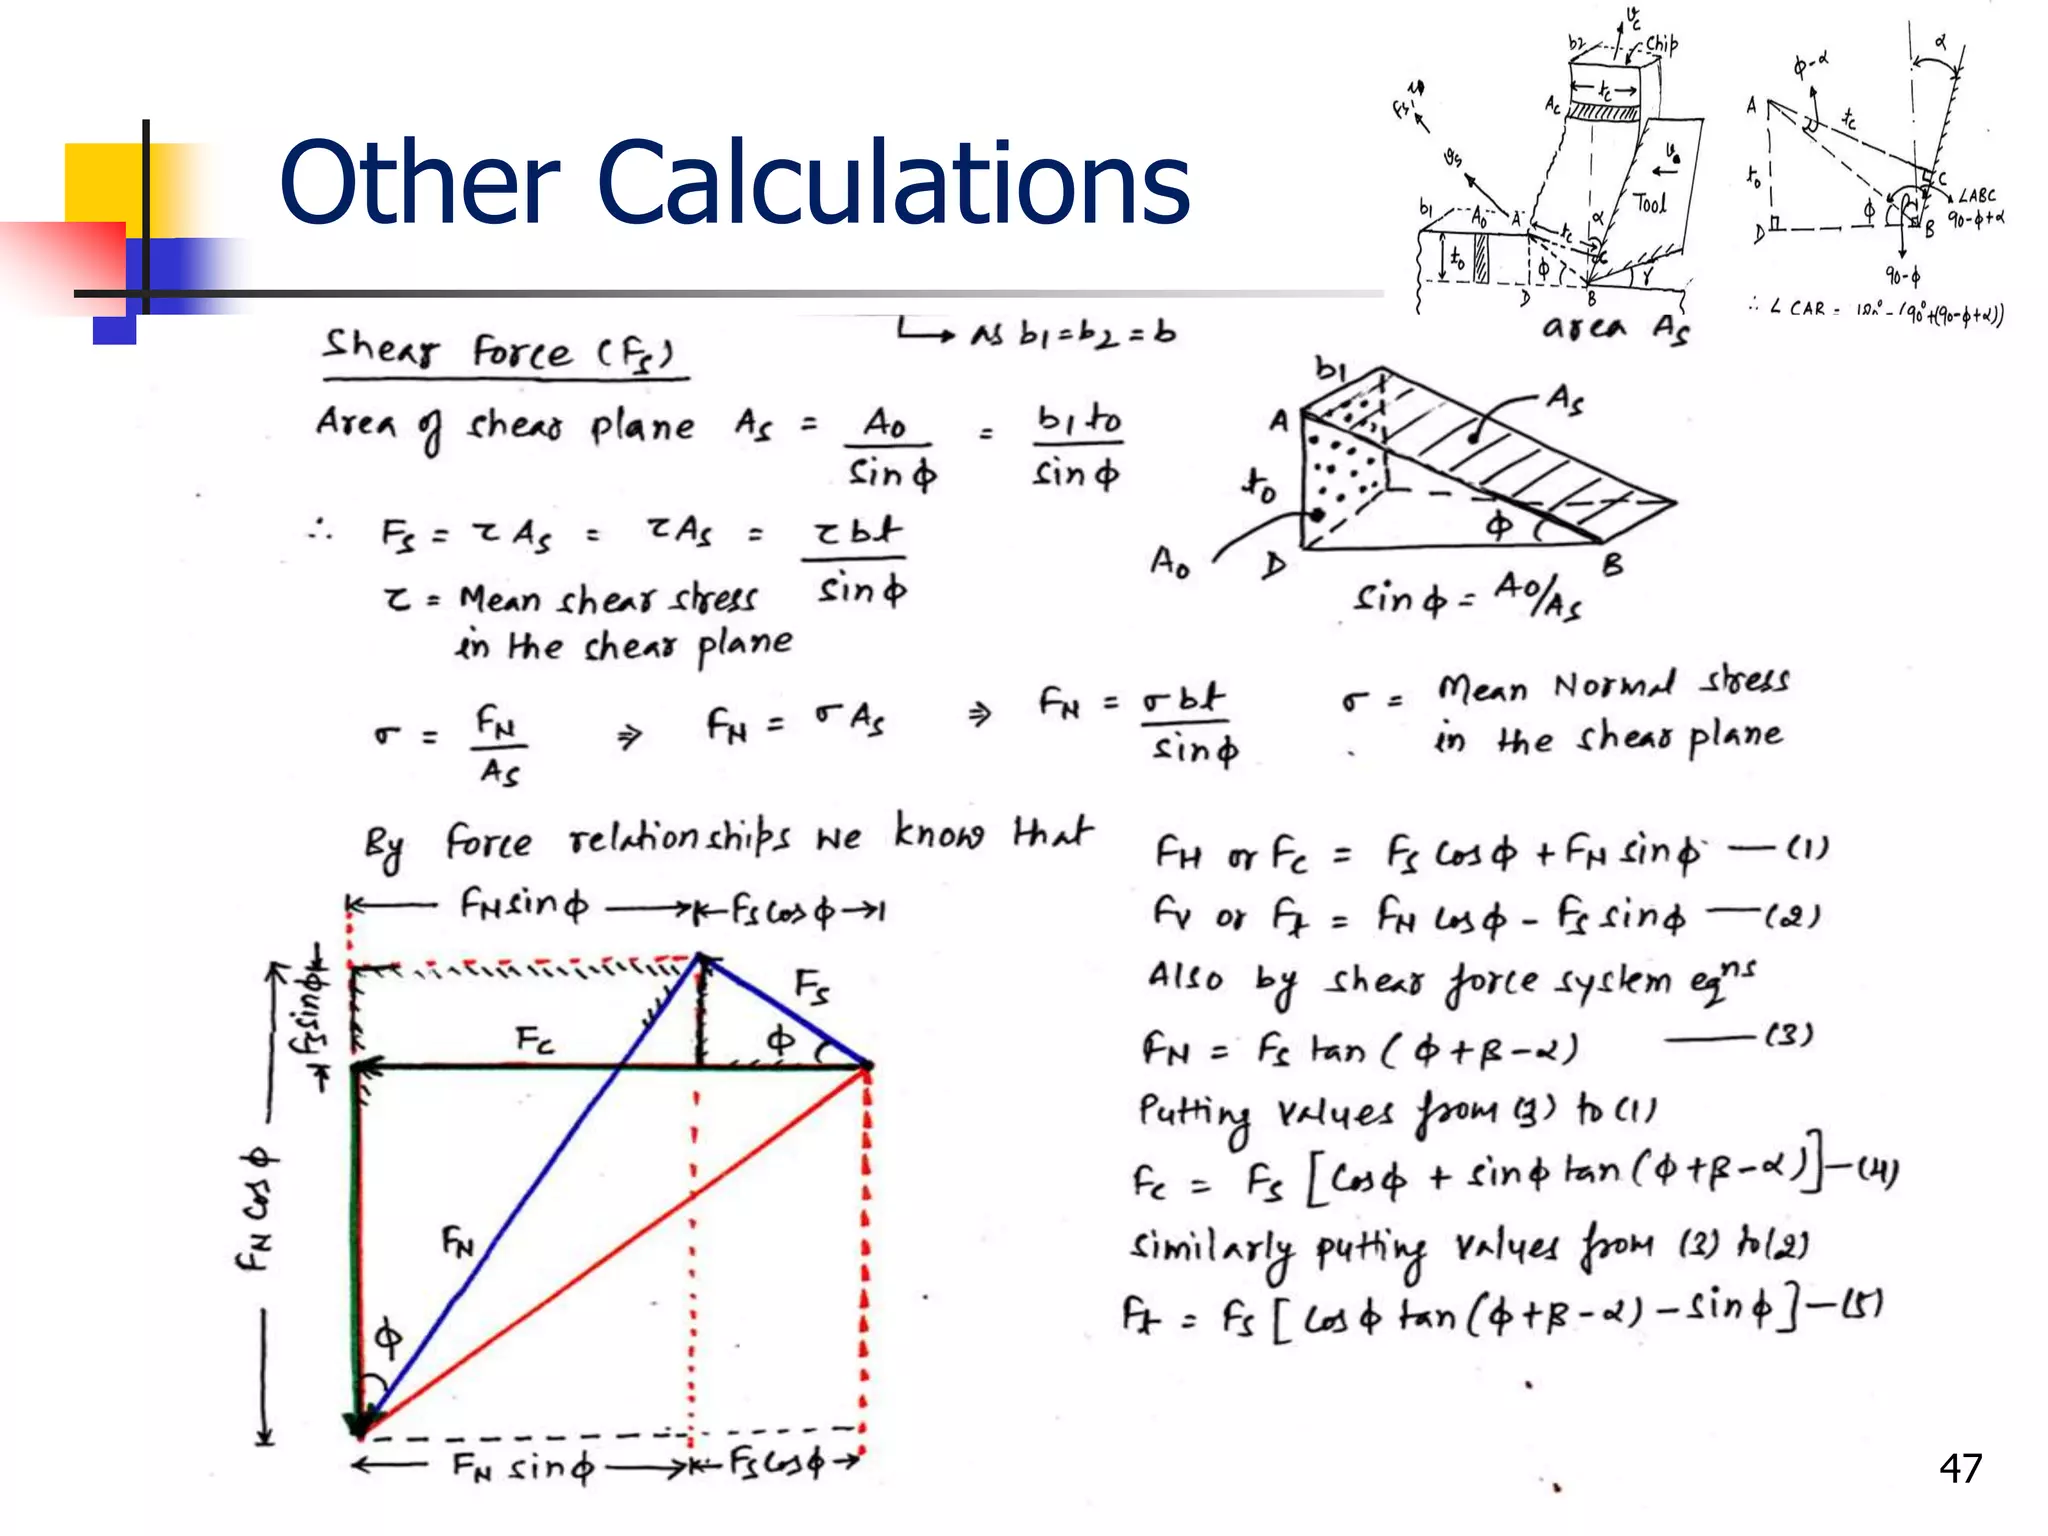 Other Calculations
b2
Vc
Chip
tc
Ac
Fs
vs
b1
A0
A
tc
α
C
Tool
t0
φ
D
B
γ
φ-α
α
A
tc
t0
C
∠ABC
90-φ+α
D
φ
B
90-φ
∴ ∠CAB = 180°-(90°+(90-φ+α))
↳ as b1=b2=b
Shear Force (Fs)
Area of shear plane As = A0/sinφ = b1t0/sinφ
∴ Fs = τAs = τAs = τbt/sinφ
τ = Mean shear stress
in the shear plane
area As
b1
As
A
t0
φ
A0
D
B
sinφ = A0/As
σ = FN/As ⇒ FN = σAs ⇒ FN = σbt/sinφ
σ = Mean Normal stress
in the shear plane
By force relationships we know that
FN sinφ
Fs cosφ
Fs sinφ
Fs
Fc
φ
FN cosφ
FN
φ
FN sinφ
Fs cosφ
FH or Fc = Fs cosφ + FN sinφ — (1)
FV or Ft = FN cosφ - Fs sinφ — (2)
Also by shear force system eqns
FN = Fs tan(φ+β-α) — (3)
Putting values from (3) to (1)
Fc = Fs [cosφ + sinφ tan(φ+β-α)] — (4)
similarly putting values from (3) to (2)
Ft = Fs [cosφ tan(φ+β-α) - sinφ] — (5)
47